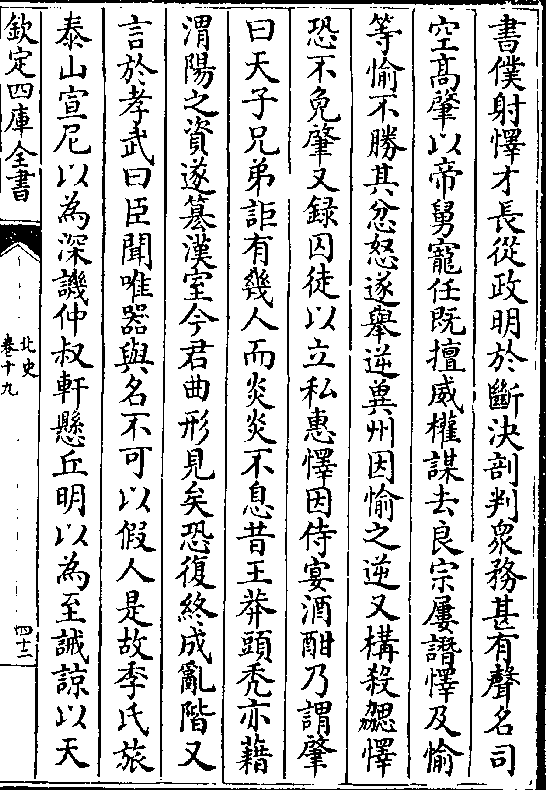 書僕射懌才長從政明於斷決剖判衆務甚有聲名司
空髙肇以帝舅寵任既擅威權謀去良宗屢譖懌及愉
等愉不勝其忿怒遂舉逆冀州因愉之逆又構殺勰懌
恐不免肇又録囚徒以立私惠懌因侍宴酒酣乃謂肇
曰天子兄弟詎有幾人而炎炎不息昔王莽頭禿亦藉
渭陽之資遂簒漢室今君曲形見矣恐復終成亂階又
言於孝武曰臣聞唯器與名不可以假人是故季氏旅
泰山宣尼以為深譏仲叔軒懸丘明以為至誡諒以天
欽定四庫全書
北史
卷十九
四十二